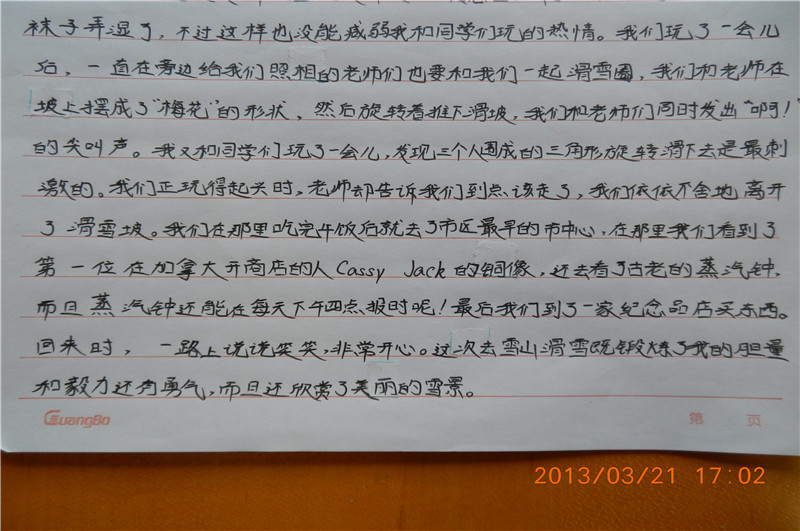 袜子弄湿了，不过这样也没能减弱我和同学们玩的热情。我们玩了一会儿
后，一直在旁边给我们照相的老师们也要和我们一起滑雪圈，我们和老师在
坡上摆成了“梅花”的形状，然后旋转着推下滑坡，我们和老师们同时发出“啊！”
的尖叫声。我又和同学们玩了一会儿，发现三个人围成的三角形旋转滑下去是最刺
激的。我们正玩得起兴时，老师却告诉我们到点该走了，我们依依不舍地离开
了滑雪坡。我们在那里吃完午饭后就去了市区最早的市中心，在那里我们看到了
第一位在加拿大开商店的人Cassy Jack的铜像，还去看了古老的蒸汽钟，
而且蒸汽钟还能在每天下午四点报时呢！最后我们到了一家纪念品店买东西。
回来时，一路上说说笑笑，非常开心。这次去雪山滑雪既锻炼了我的胆量
和毅力还有勇气，而且还欣赏了美丽的雪景。
GuangBo 第 页
2013/03/21 17:02